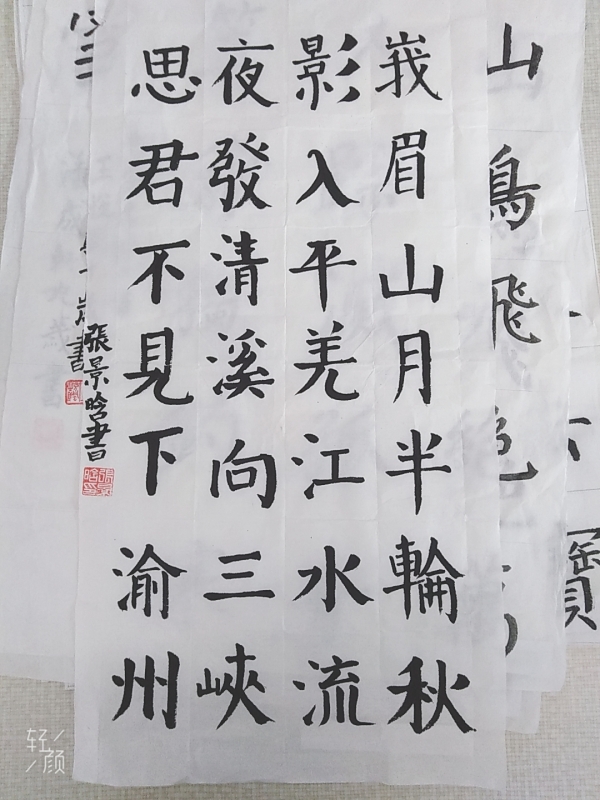 山鳥飛
峩眉山月半輪秋
影入平羌江水流
夜發清溪向三峽
思君不見下渝州
張景晗書
書
轻颜